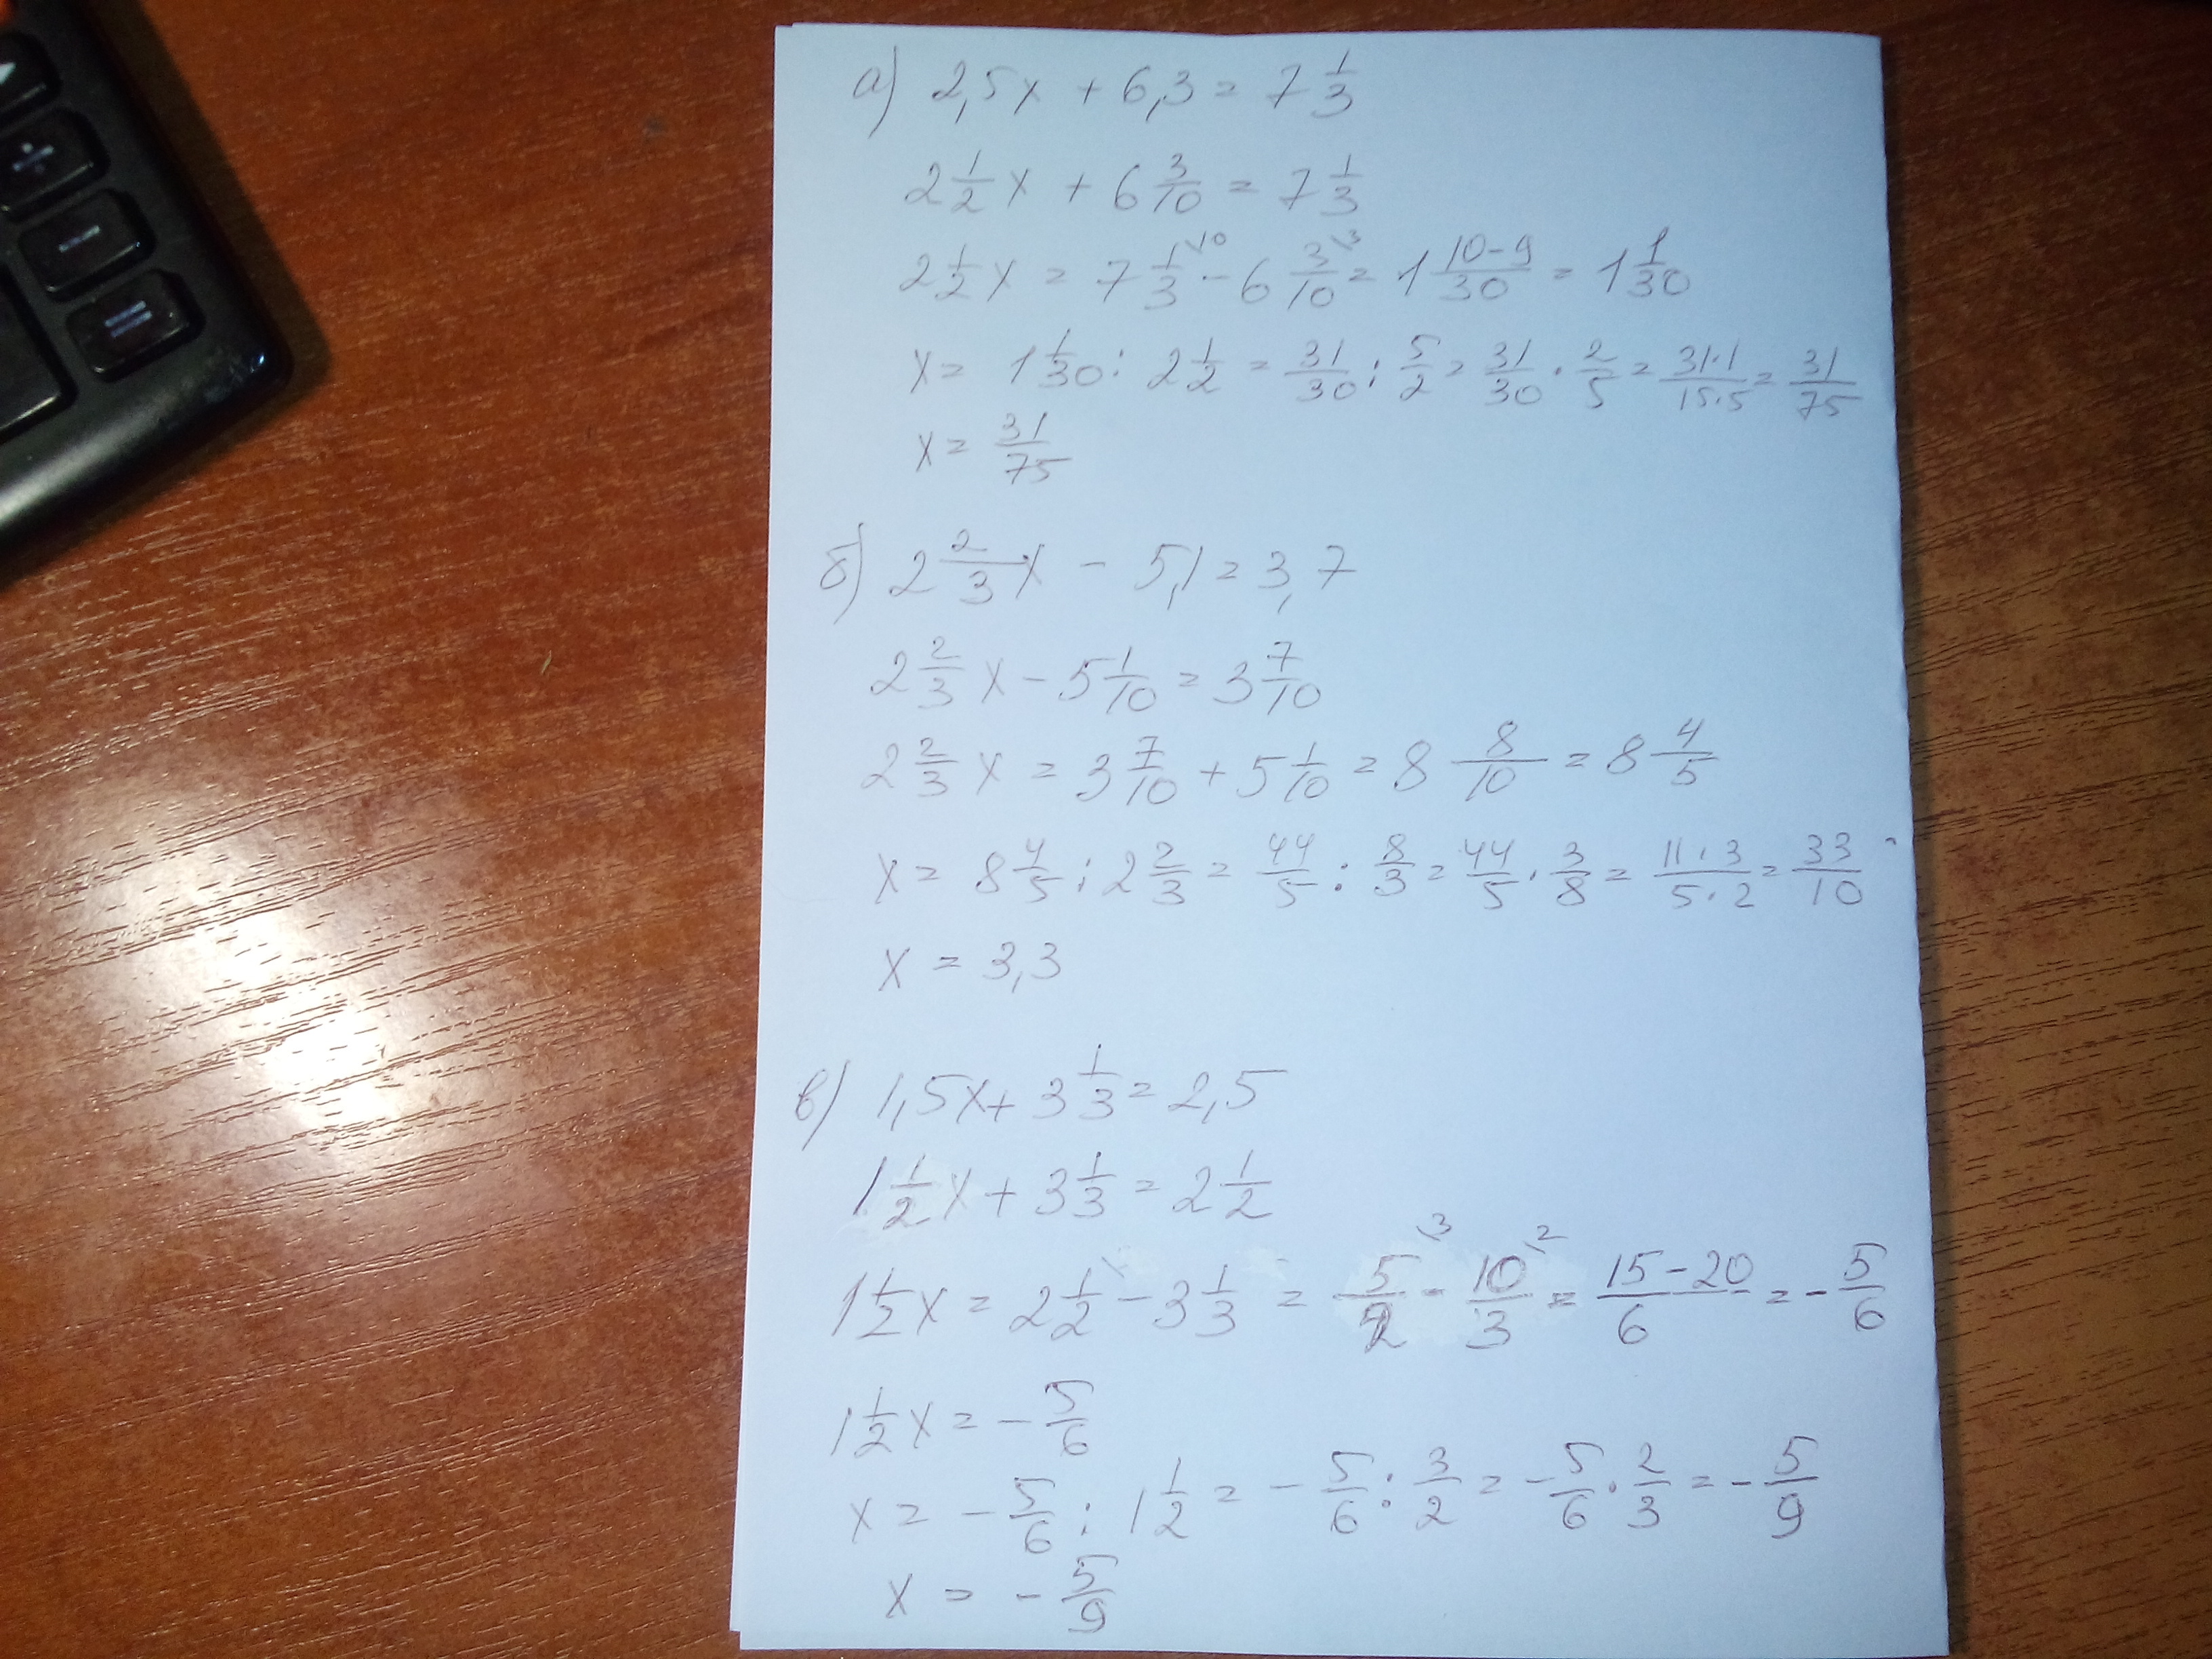 а) 2,5x + 6,3 = 7 1/3
2 1/2 x + 6 3/10 = 7 1/3
2 1/2 x = 7 1/3 \10 - 6 3/10 \3 = 1 (10-9)/30 = 1 1/30
x = 1 1/30 : 2 1/2 = 31/30 : 5/2 = 31/30 · 2/5 = (31·1)/(15·5) = 31/75
x = 31/75
б) 2 2/3 x - 5,1 = 3,7
2 2/3 x - 5 1/10 = 3 7/10
2 2/3 x = 3 7/10 + 5 1/10 = 8 8/10 = 8 4/5
x = 8 4/5 : 2 2/3 = 44/5 : 8/3 = 44/5 · 3/8 = (11·3)/(5·2) = 33/10
x = 3,3
в) 1,5x + 3 1/3 = 2,5
1 1/2 x + 3 1/3 = 2 1/2
1 1/2 x = 2 1/2 - 3 1/3 = 5/2 \3 - 10/3 \2 = (15-20)/6 = - 5/6
1 1/2 x = - 5/6
x = - 5/6 : 1 1/2 = - 5/6 : 3/2 = - 5/6 · 2/3 = - 5/9
x = - 5/9